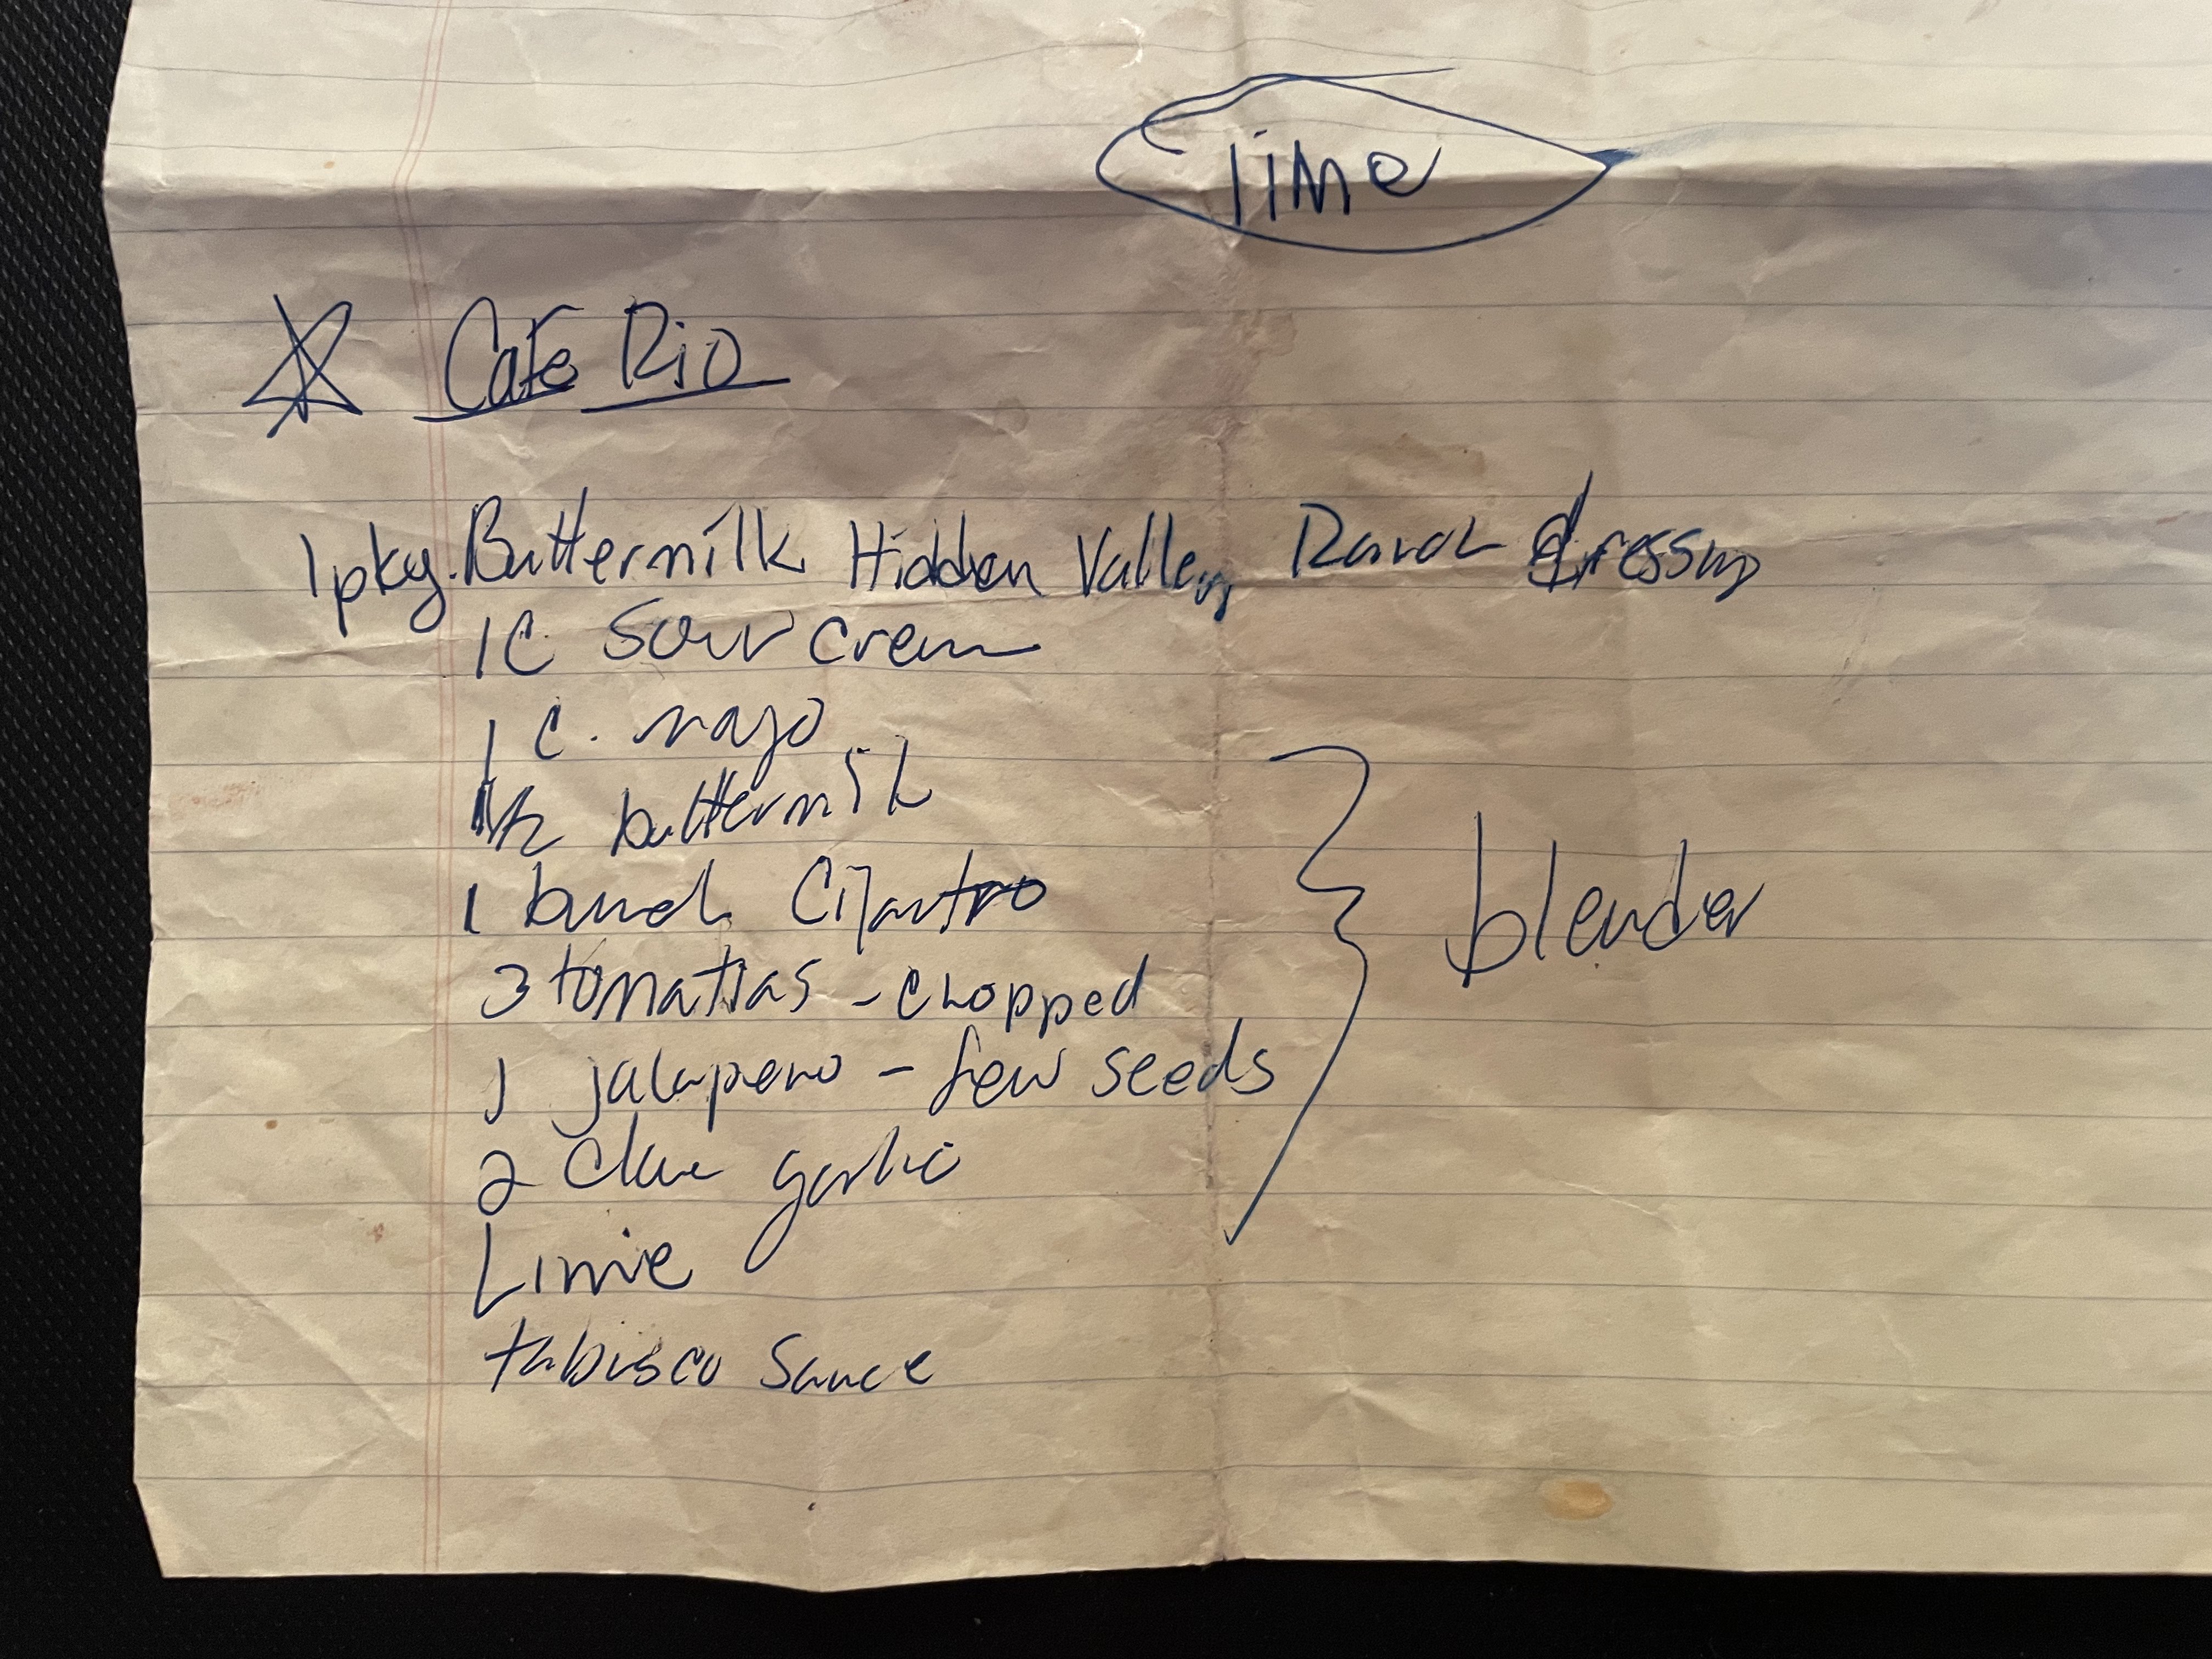 lime
Cafe Rio
1 pkg. Buttermilk Hidden Valley Ranch dressing
1 C Sour cream
1 C. mayo
1/2 buttermilk
1 bunch Cilantro
3 tomattas - chopped
1 jalapeno - few seeds
2 clove garlic
Lime
tabisco Sauce
blender